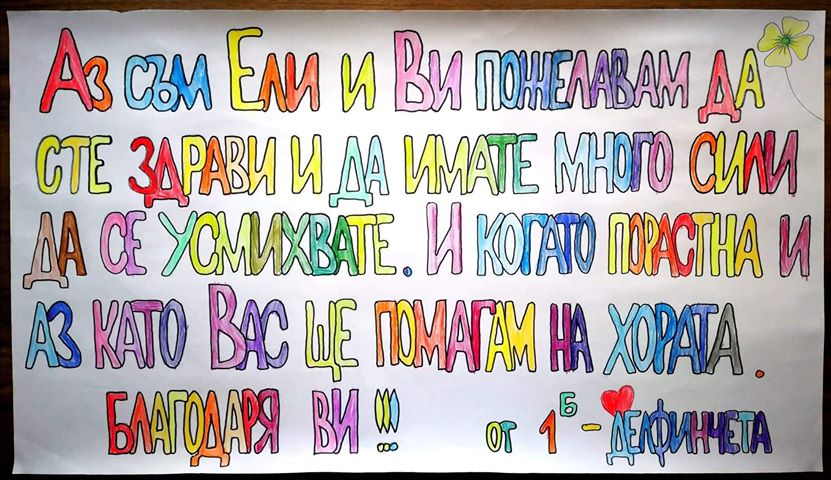 Аз съм Ели и Ви пожелавам да
сте здрави и да имате много сили
да се усмихвате. И когато порастна и
аз като Вас ще помагам на хората.
Благодаря Ви!!! от 1Б - Делфинчета